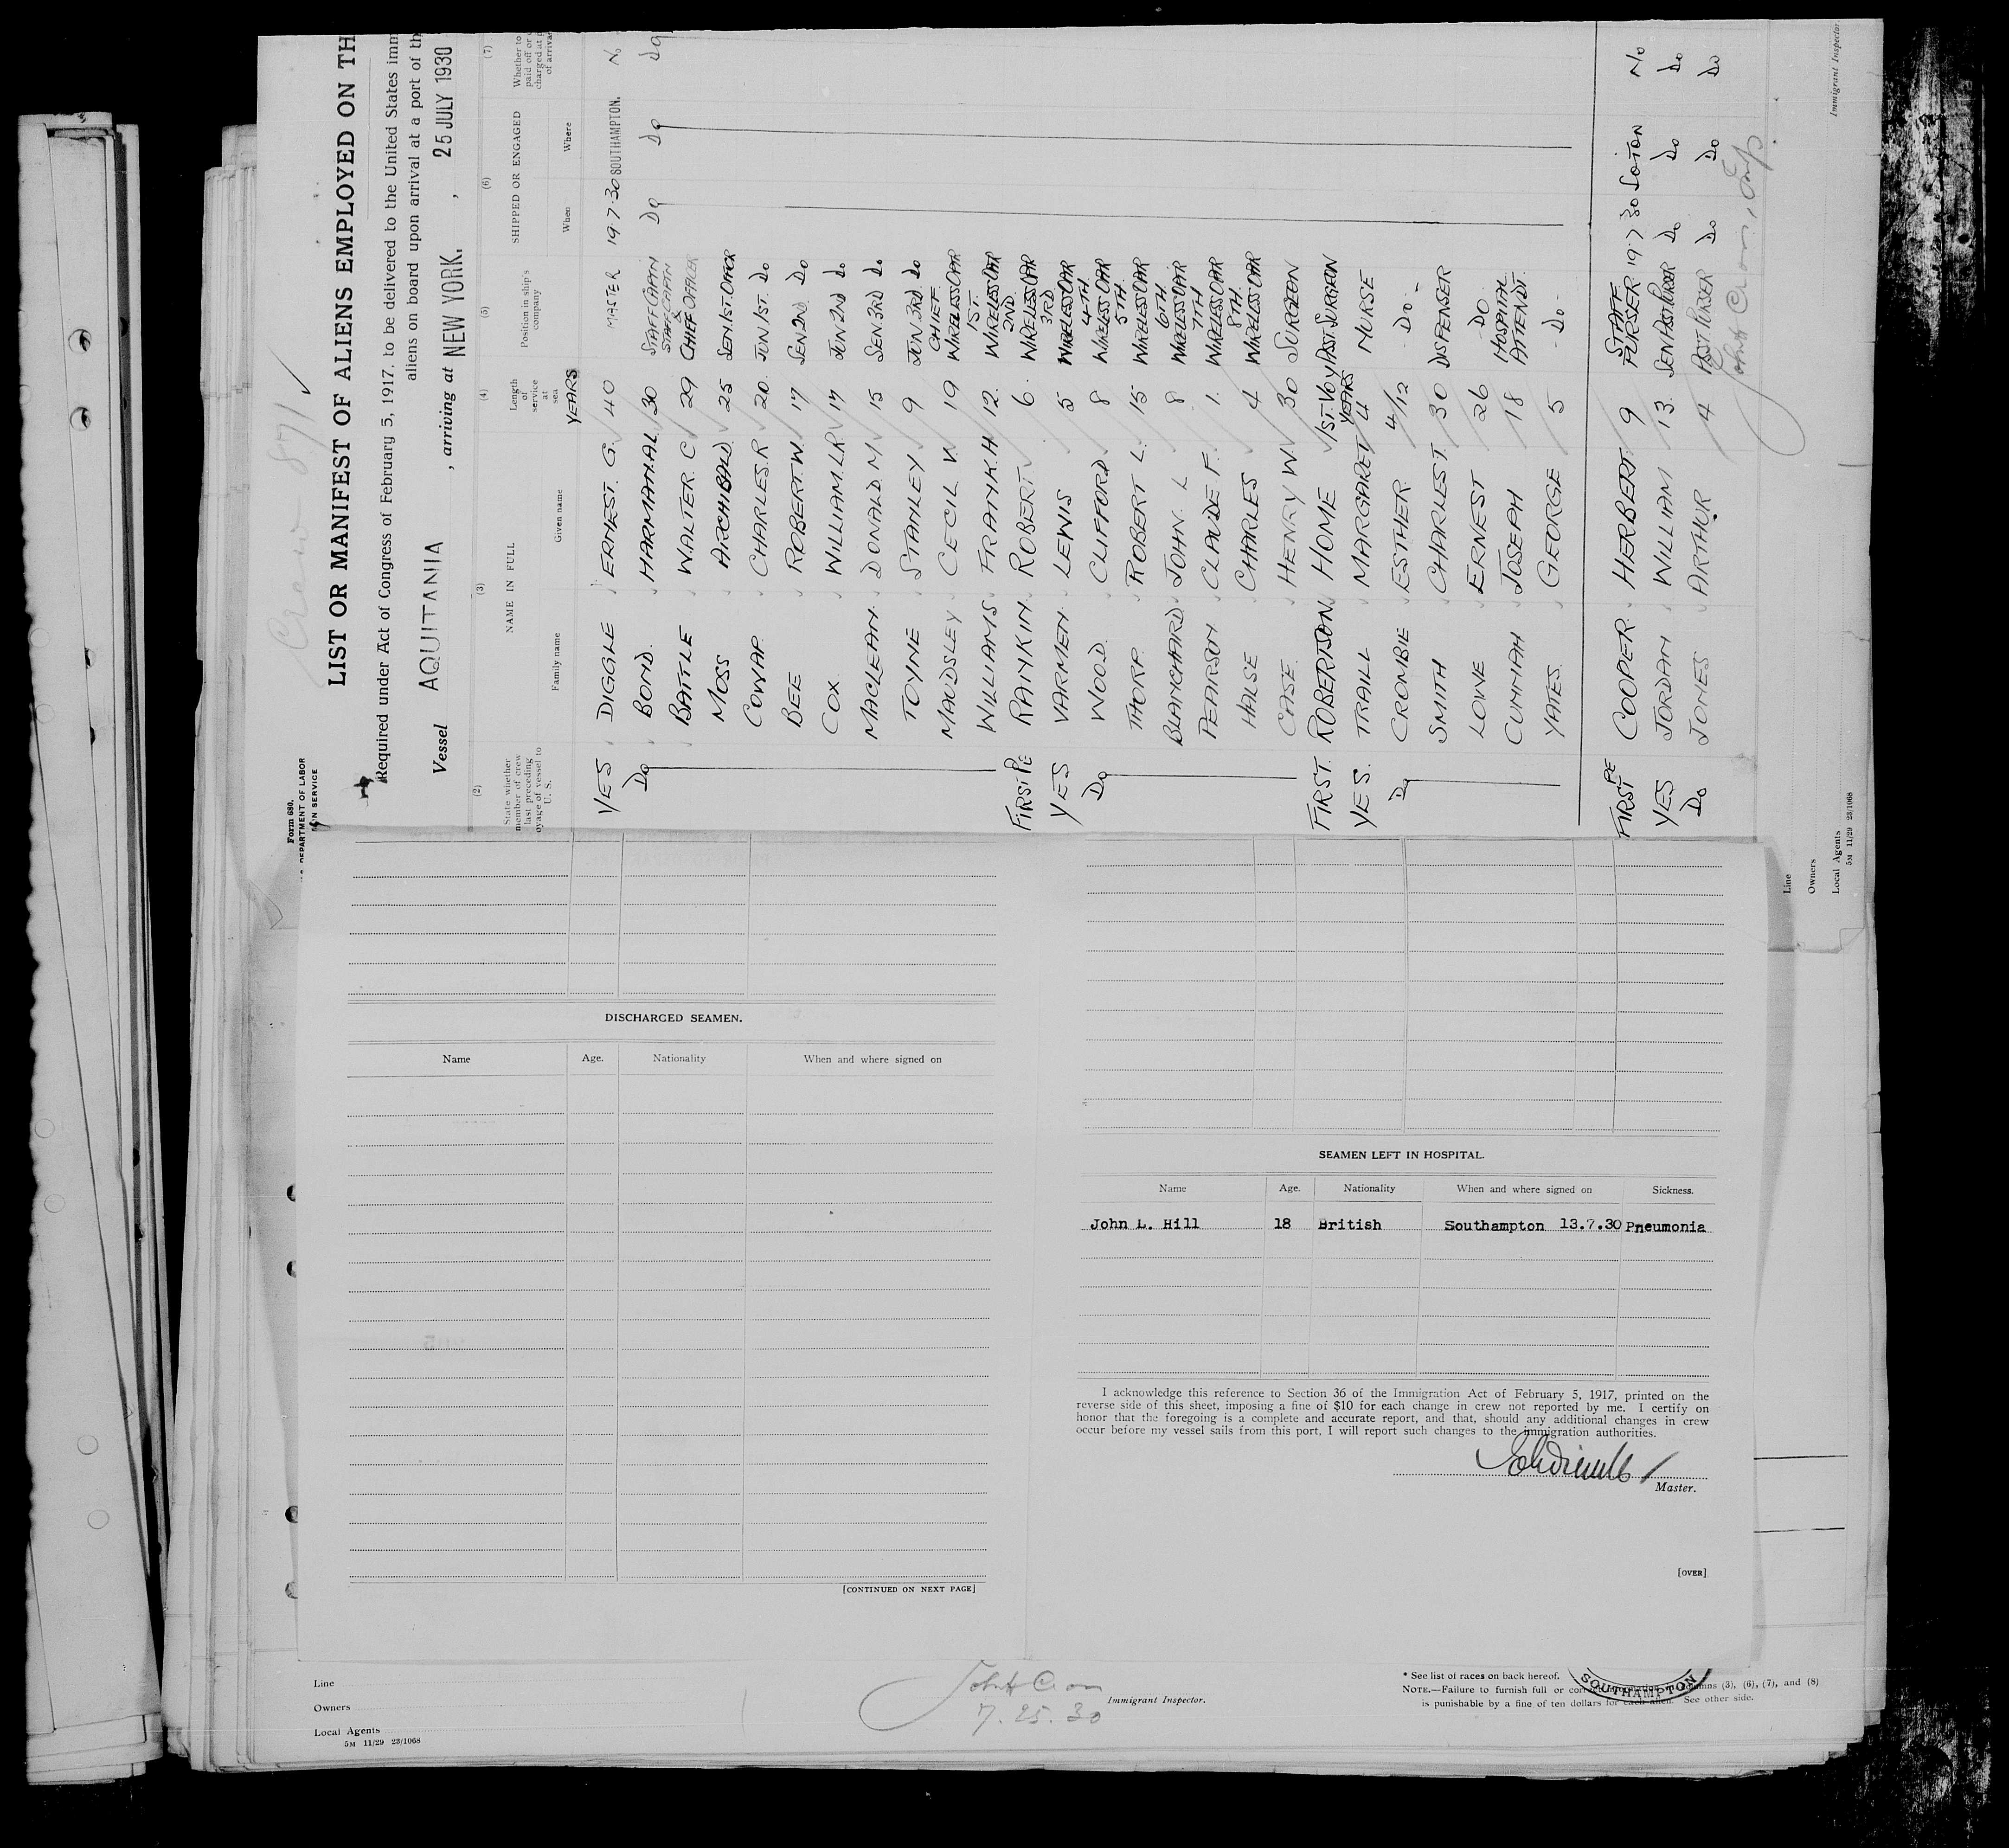 Crew - 871 ✓
LIST OR MANIFEST OF ALIENS EMPLOYED ON TH
Required under Act of Congress of February 5, 1917, to be delivered to the United States imm
aliens on board upon arrival at a port of th
Vessel AQUITANIA , arriving at NEW YORK. , 25 JULY 1930
Form 680.
DEPARTMENT OF LABOR
SERVICE
(2) (3) (4) (5) (6) (7)
State whether member of crew last preceding voyage of vessel to U. S. NAME IN FULL Length of service at sea Position in ship's company SHIPPED OR ENGAGED Whether to paid off or charged at of arrival
Family name Given name When Where
YEARS
YES DIGGLE ERNEST. G. 40 MASTER 19 7 30 SOUTHAMPTON. No
Do BOND. HARMAN.AL 30 STAFF CAPTN Do Do Do
BATTLE WALTER. C 29 STAFF CAPTN & CHIEF OFFICER
MOSS ARCHIBALD. 25 SEN.1ST.OFFICER
COWAP. CHARLES.R 20. JUN 1ST. Do
BEE ROBERT.W. 17 SEN 2ND. Do
COX. WILLIAM.LR 17 JUN 2ND Do
MACLEAN DONALD. M. 15 SEN.3RD. Do
TOYNE STANLEY. 9 JUN 3RD. Do
MAUDSLEY CECIL V. 19 CHIEF. WIRELESS OPR
WILLIAMS FRANK.H 12. 1ST. WIRELESS OPR
FIRST PE RANKIN ROBERT. 6. 2ND. WIRELESS OPR
YES VARMEN LEWIS 5 3RD WIRELESS OPR
Do WOOD. CLIFFORD. 8 4TH. WIRELESS OPR
THORP. ROBERT L. 15 5TH. WIRELESS OPR
BLANCHARD JOHN. L 8 6TH. WIRELESS OPR
PEARSON CLAUDE F. 1. 7TH WIRELESS OPR
HALSE CHARLES 4 8TH. WIRELESS OPR
CASE. HENRY W. 30 SURGEON
FIRST. ROBERTSON HOME 1ST. VOY ASST SURGEON
YES. TRAILL MARGARET 4 YEARS NURSE
Do CROMBIE ESTHER 4/12 - Do -
SMITH CHARLES T. 30 DISPENSER
LOWE ERNEST 26 - DO -
CUNNAH JOSEPH 18 HOSPITAL ATTENDT.
YATES. GEORGE 5 - Do -
FIRST PE COOPER HERBERT 9 STAFF PURSER 19.7 30 SOTON No
YES JORDAN WILLIAM 13. SEN AST PURSER Do Do Do
Do JONES ARTHUR 4 AST. PURSER Do Do Do
Immigrant Inspector
Line
Owners
Local Agents
5M 11/29 23/1068
DISCHARGED SEAMEN.
Name Age. Nationality When and where signed on
[CONTINUED ON NEXT PAGE]
SEAMEN LEFT IN HOSPITAL.
Name Age. Nationality When and where signed on Sickness.
John L. Hill 18 British Southampton 13.7.30 Pneumonia
I acknowledge this reference to Section 36 of the Immigration Act of February 5, 1917, printed on the
reverse side of this sheet, imposing a fine of $10 for each change in crew not reported by me. I certify on
honor that the foregoing is a complete and accurate report, and that, should any additional changes in crew
occur before my vessel sails from this port, I will report such changes to the immigration authorities.
Master.
[OVER]
Line
Owners
Local Agents
5M 11/29 23/1068
7. 25. 30
Immigrant Inspector.
* See list of races on back hereof.
NOTE.—Failure to furnish full or (3), (6), (7), and (8)
is punishable by a fine of ten dollars for each alien. See other side.
SOUTHAMPTON